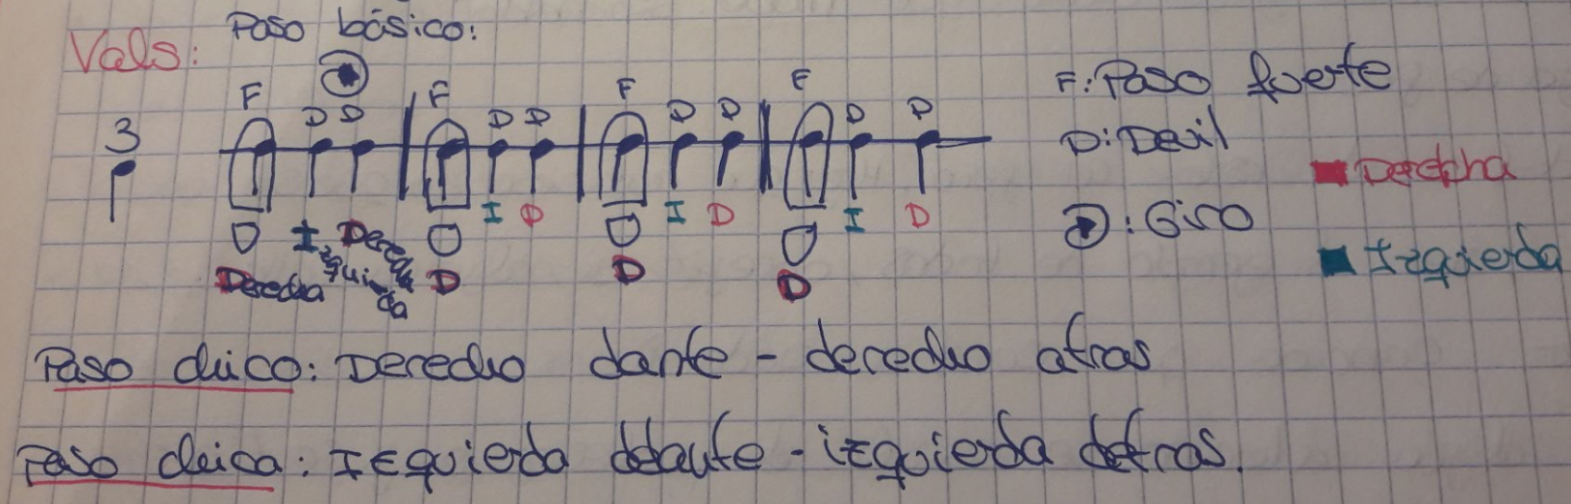 Vals: Paso básico:
F D D F D D F D D F D D
3
I D I D I D
I Derecha
Izquierda
Derecha D D D
F: Paso fuerte
D: Devil
: Giro
Derecha
Izquierda
Paso chico: Derecho dante - derecho atras
Paso chica: Izquierda delante - izquierda detras.